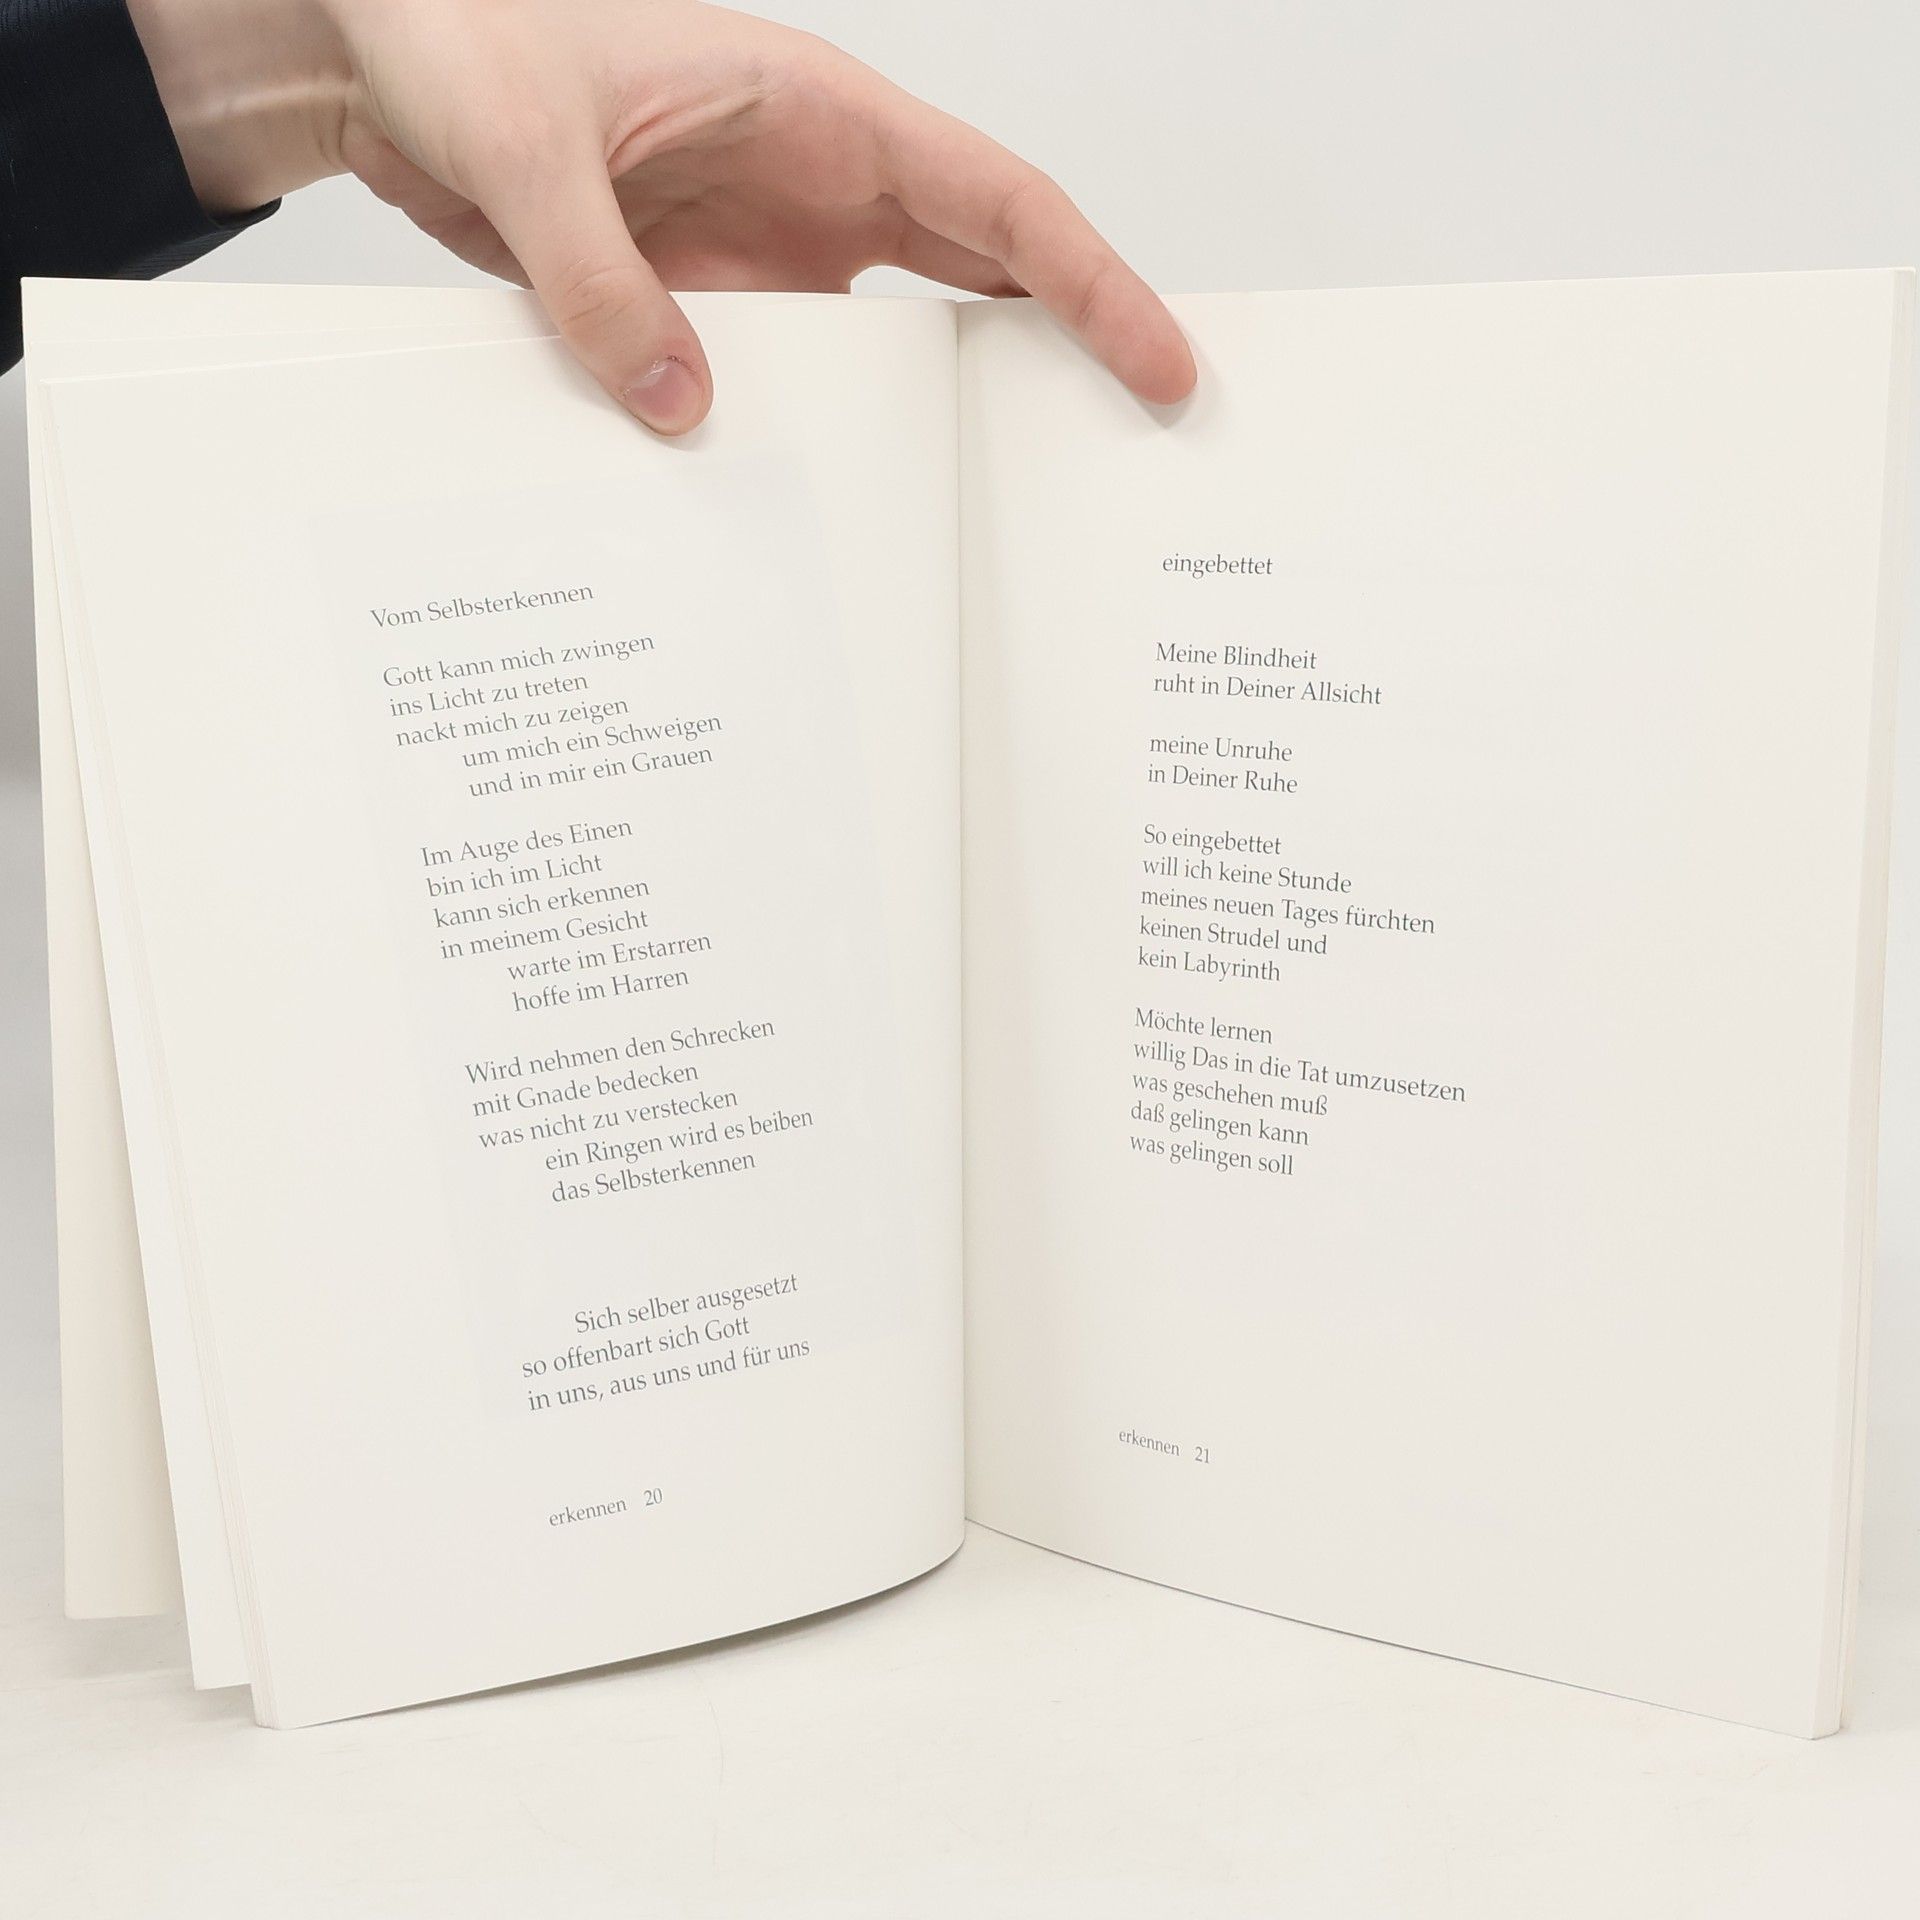 Vom Selbsterkennen
Gott kann mich zwingen
ins Licht zu treten
nackt mich zu zeigen
um mich ein Schweigen
und in mir ein Grauen
Im Auge des Einen
bin ich im Licht
kann sich erkennen
in meinem Gesicht
warte im Erstarren
hoffe im Harren
Wird nehmen den Schrecken
mit Gnade bedecken
was nicht zu verstecken
ein Ringen wird es beiben
das Selbsterkennen
Sich selber ausgesetzt
so offenbart sich Gott
in uns, aus uns und für uns
erkennen 20
eingebettet
Meine Blindheit
ruht in Deiner Allsicht
meine Unruhe
in Deiner Ruhe
So eingebettet
will ich keine Stunde
meines neuen Tages fürchten
keinen Strudel und
kein Labyrinth
Möchte lernen
willig Das in die Tat umzusetzen
was geschehen muß
daß gelingen kann
was gelingen soll
erkennen 21